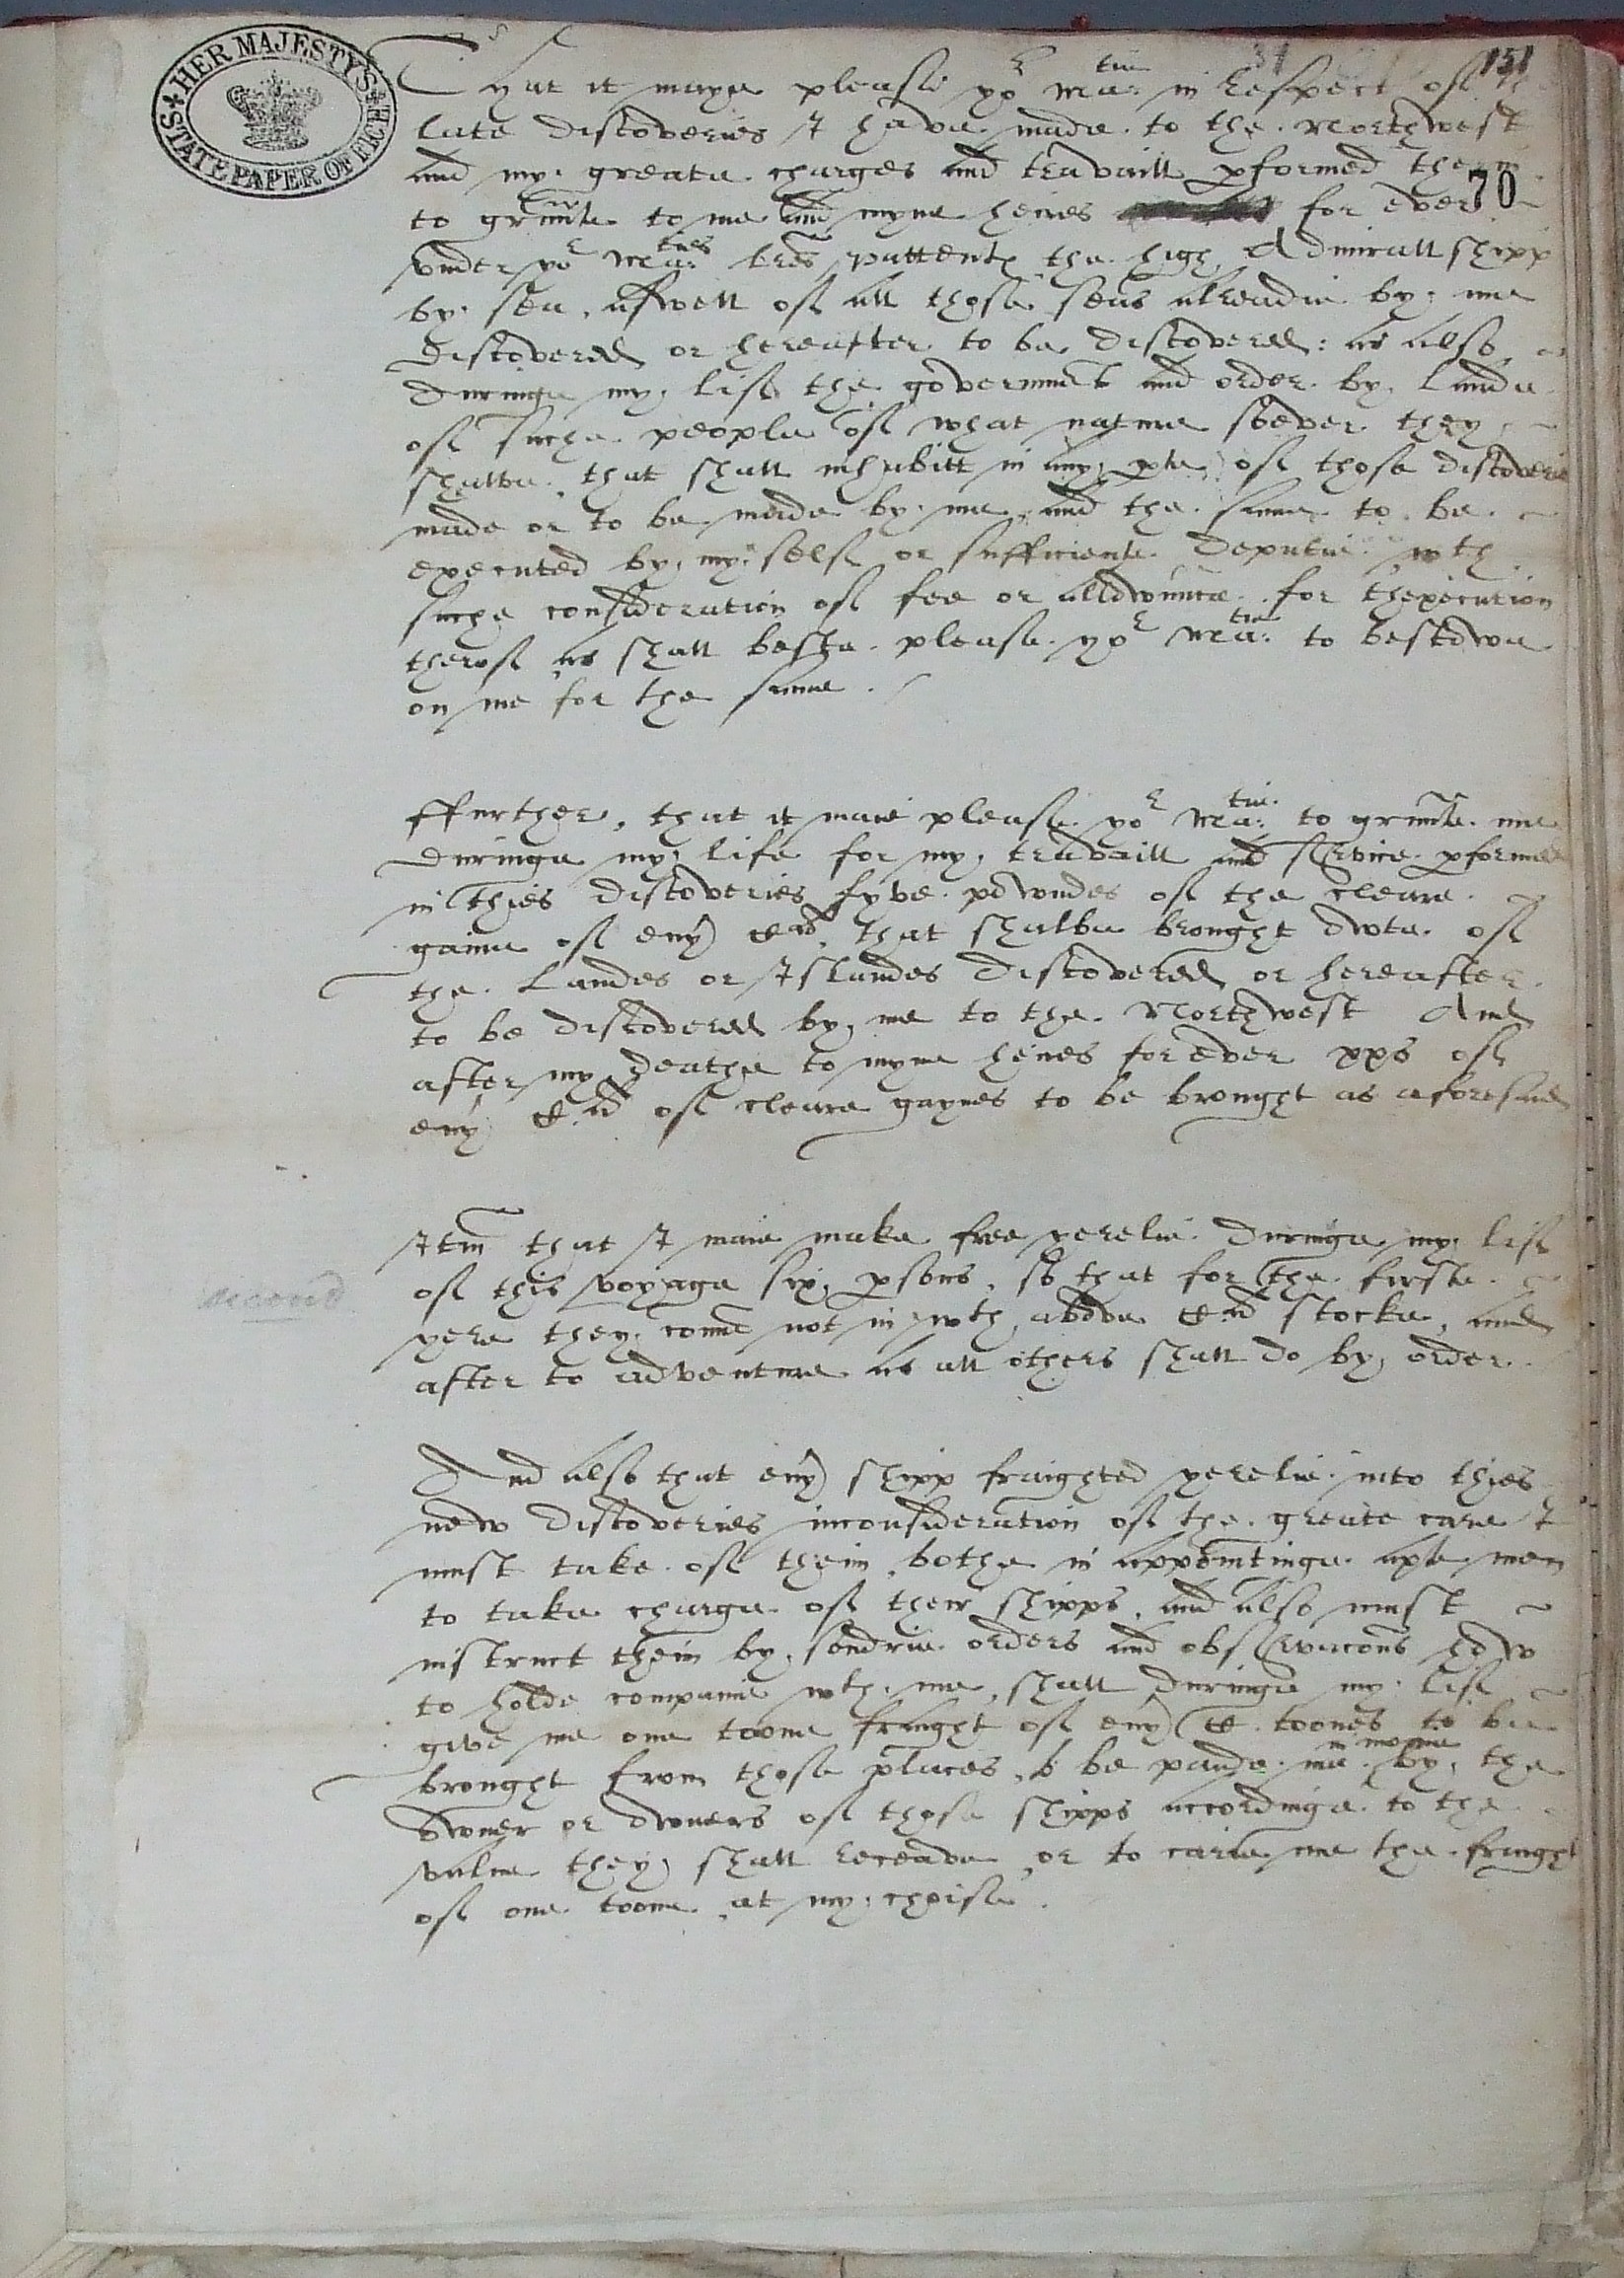 HER MAJESTY'S
STATE PAPER OFFICE
151
70
That it maye please yor Matie in respect of
late discoveries I have made to the Northwest
and my greate charges and travaill pformed therin
to graunte to me and myne heires for ever
vnder yor Maties lres pattents the high Admirallshipp
by sea, aswell of all those seas alreadie by me
discovered or hereafter to be discovered: as also
duringe my lif the governmt and order by lande
of suche people of what nature soever they
shalbe that shall inhabitt in any pte of those discoverie
made or to be made by me and the same to be
executed by my self or sufficiente deputie wth
suche consideration of fee or allowance for thexecution
therof as shall beste please yor Matie to bestowe
on me for the same.
ffurther, that it maie please yor Matie to graunte me
duringe my life for my travaill and service pformed
in thies discoveries fyve powndes of the cleare
gaine of eny that shalbe brought owte of
the Landes or Islandes discovered or hereafter
to be discovered by me to the Northwest And
after my deathe to myne heires for ever xxs of
eny of cleare gaynes to be brought as aforesaid
Itm that I maie make free yerelie duringe my lif
of this voyage six psons, so that for the firste
yere they come not in wth above stocke, and
after to adventure as all others shall do by order.
second
And also that eny shipp fraighted yerelie into thies
new discoveries inconsideration of the greate care I
must take of theim bothe in appointinge apte men
to take charge of their shipps, and also must
instruct theim by sondrie orders and observacons how
to holde companie wth me, shall duringe my lif
give me one toone fraight of eny C toones to be
brought from those places, to be paide me in monie by the
owner or owners of those shipps accordinge to the
value they shall receave or to carie me the fraight
of one toone at my choise.